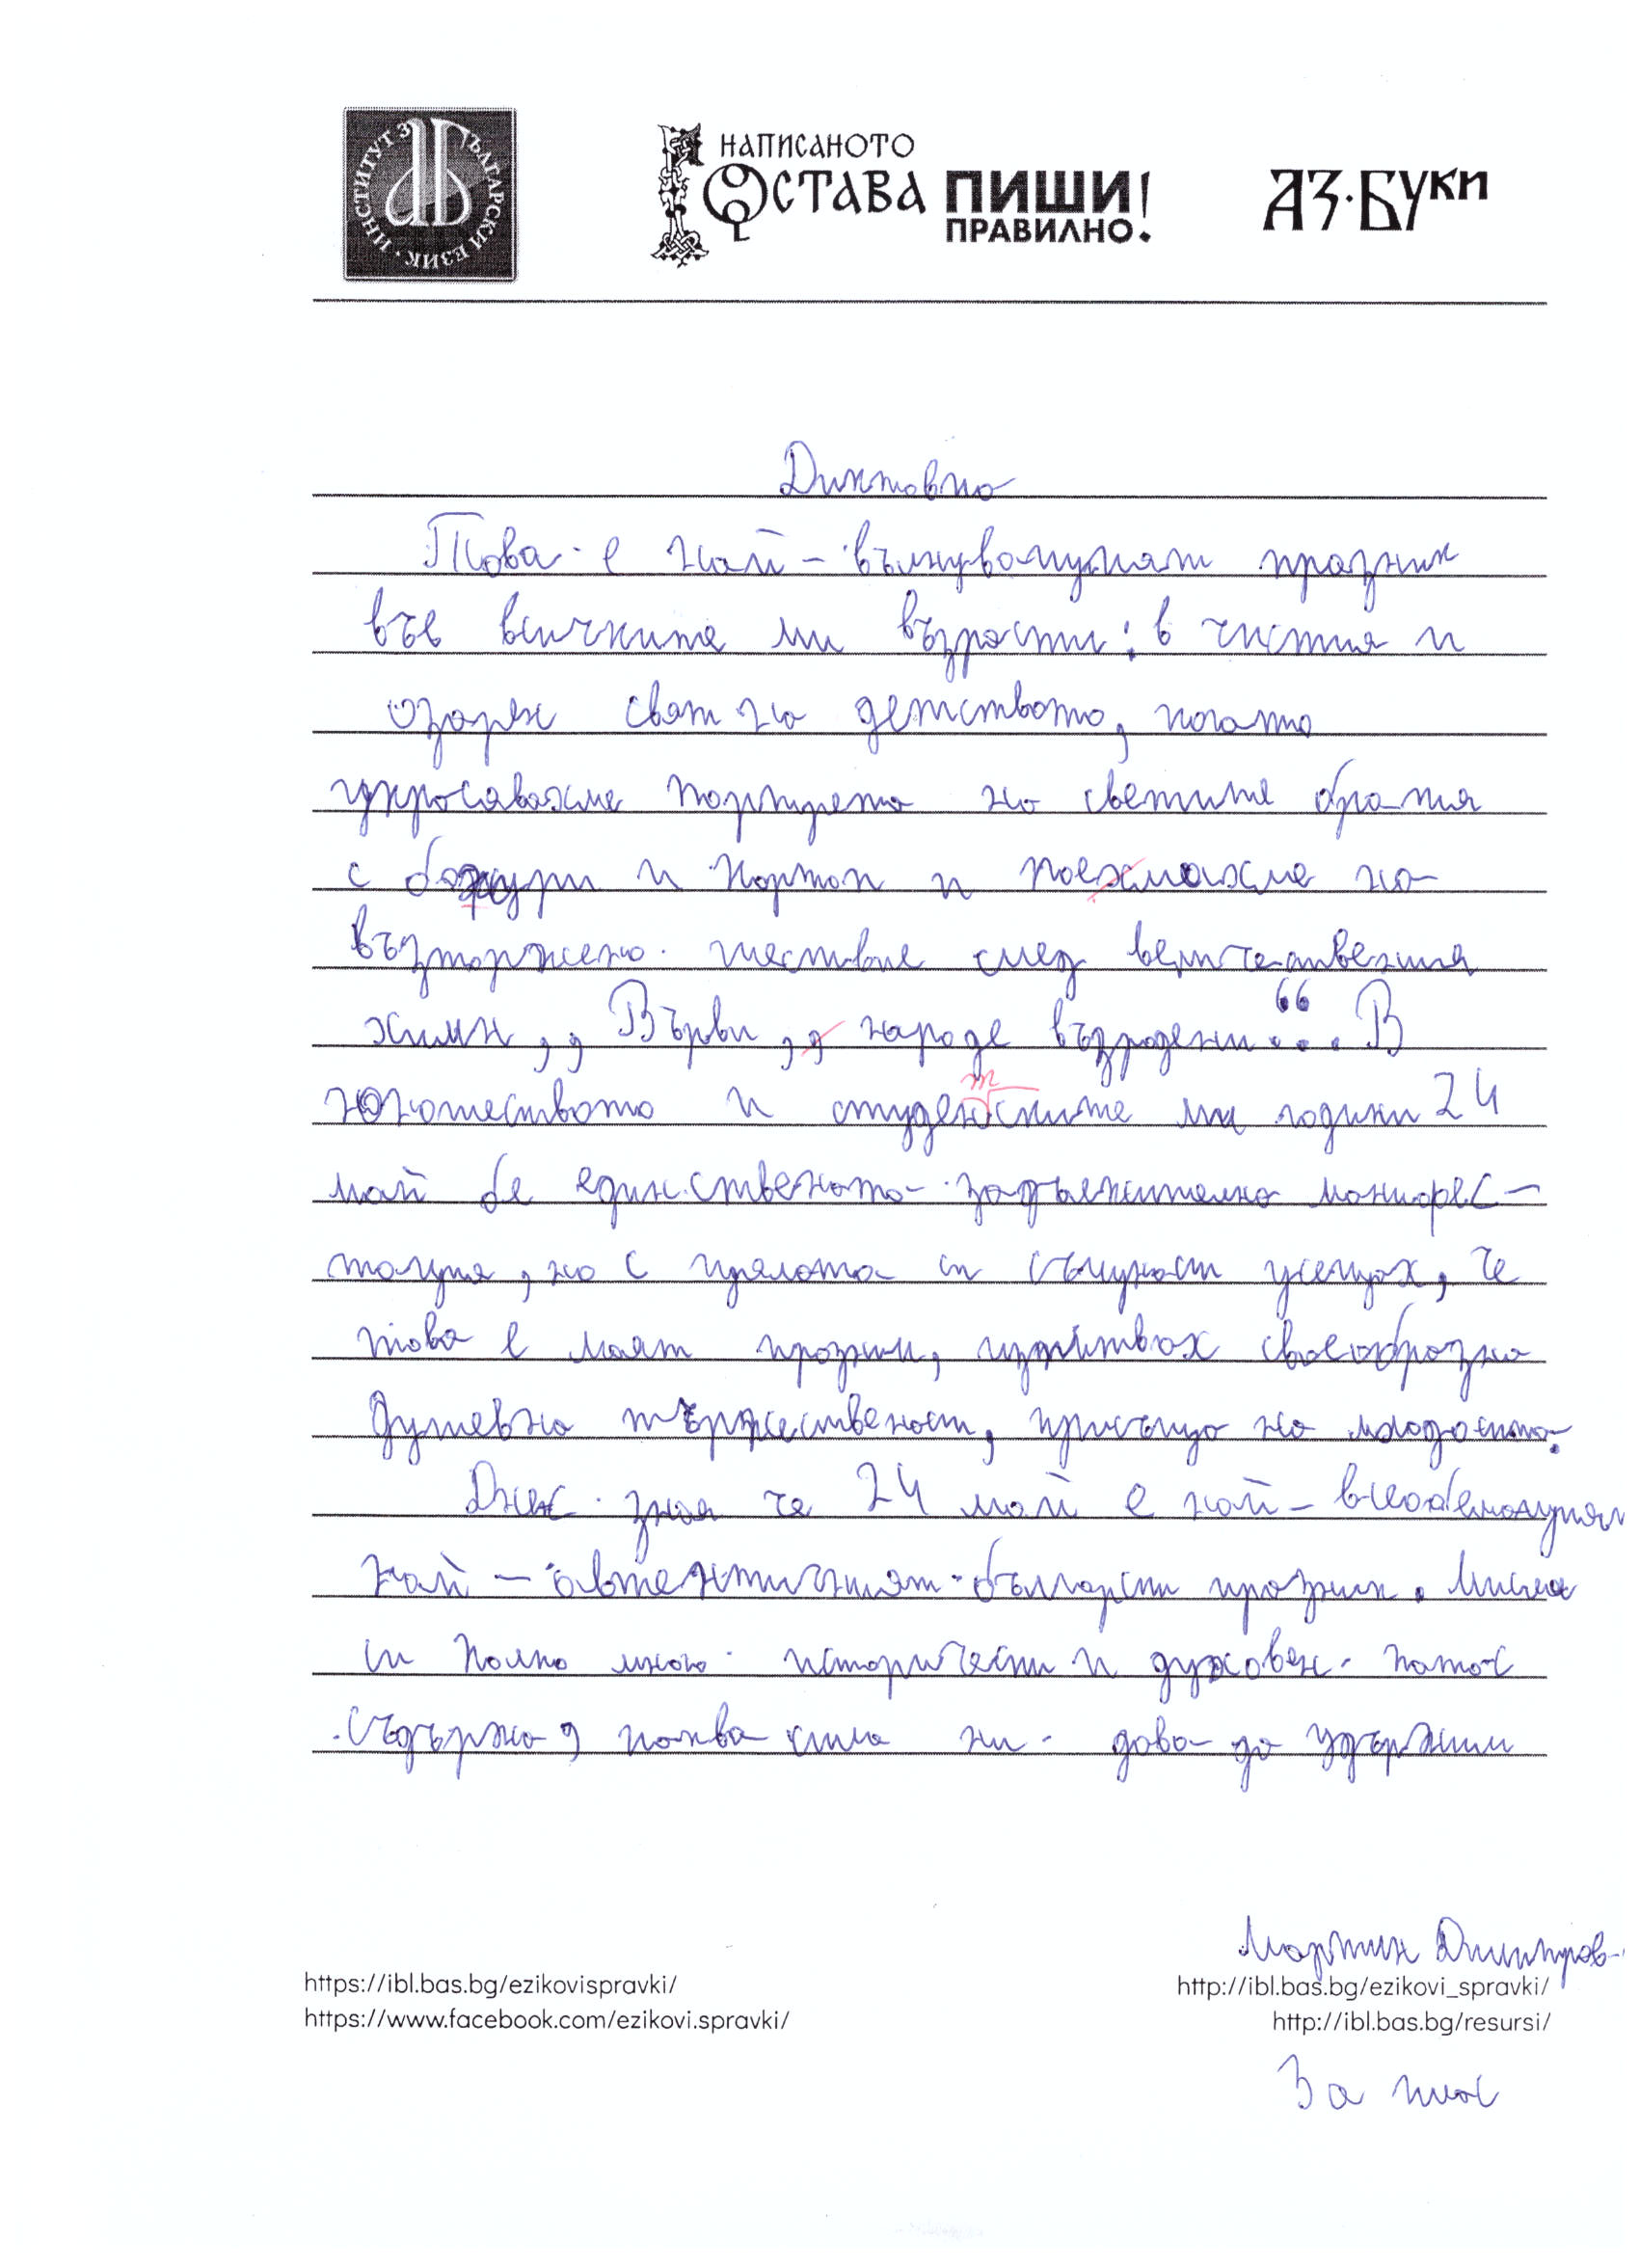 ИНСТИТУТ ЗА БЪЛГАРСКИ ЕЗИК
НАПИСАНОТО
ОСТАВА ПИШИ
ПРАВИЛНО!
АЗ·БУКИ
Диктовка
Това е най-вълнуващият празник
във всичките ми възрасти: в чистия и
озарен свят на детството, когато
украсявахме портрета на светите братя
с божури и картон и поехмахме на
възторжено шествие след величествения
химн ,, Върви ,, народе възродени“... В
юношеството и студенските ми години 24
май бе единствената задължителна манифес-
тация, но с цялата си същност усещах, че
това е моят празник, изпитвах своеобразна
душевна тържественост, присъща на младостта.
Днес зная че 24 май е най-всеобемащия
най-автентичният български празник. Мисля
си колко много исторически и духовен патос
съдържа, каква сила ни дава да удържим
Мартин Димитров
https://ibl.bas.bg/ezikovispravki/
http://ibl.bas.bg/ezikovi_spravki/
https://www.facebook.com/ezikovi.spravki/
http://ibl.bas.bg/resursi/
За нас